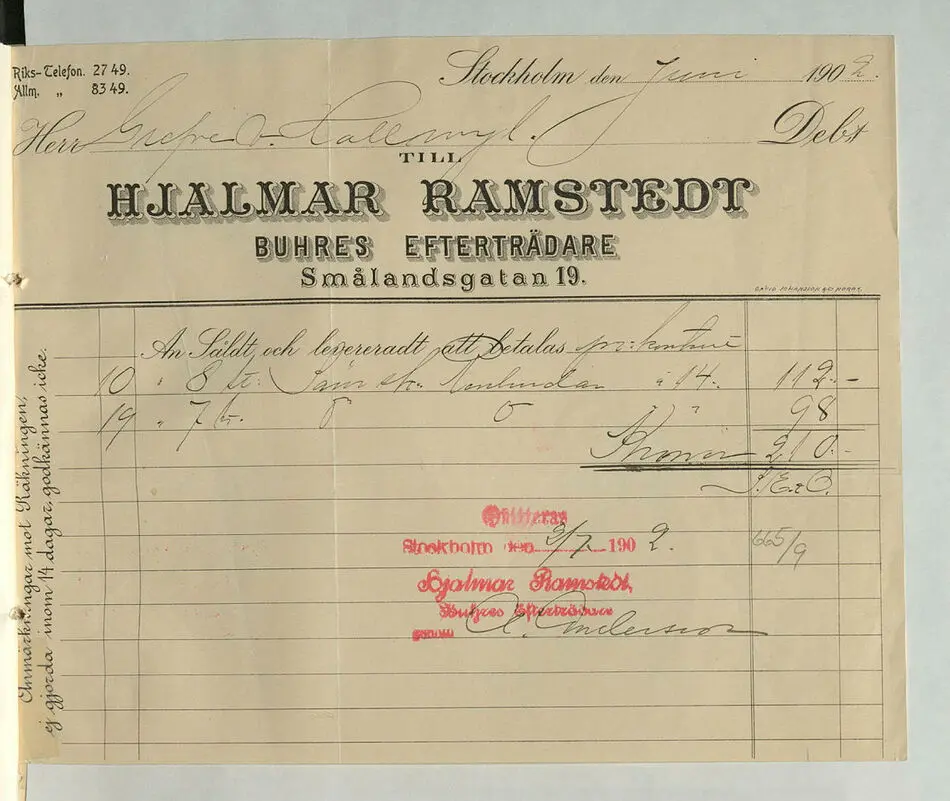 Riks-Telefon. 27 49.
Allm. „ 83 49.
Stockholm den Juni 1902.
Herr Grefve v. Hallwyl. Debet
TILL
HJALMAR RAMSTEDT
BUHRES EFTERTRÄDARE
Smålandsgatan 19.
An Såldt och levereradt att betalas pr: kontant
10 " 8 st: à 14. 112.-
19 " 7 st. " 98
Kronor 210.-
S. E. & O.
665/9
Qvitteras
Stockholm den 3/7 1902.
Hjalmar Ramstedt,
Buhres Efterträdare
genom A. Anderson
Anmärkningar mot Räkningen,
ej gjorda inom 14 dagar, godkännas icke.